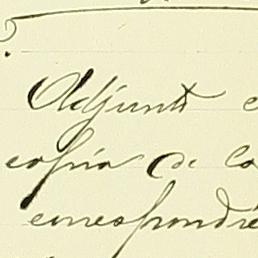 Adjunto e
copia de la
correspondie